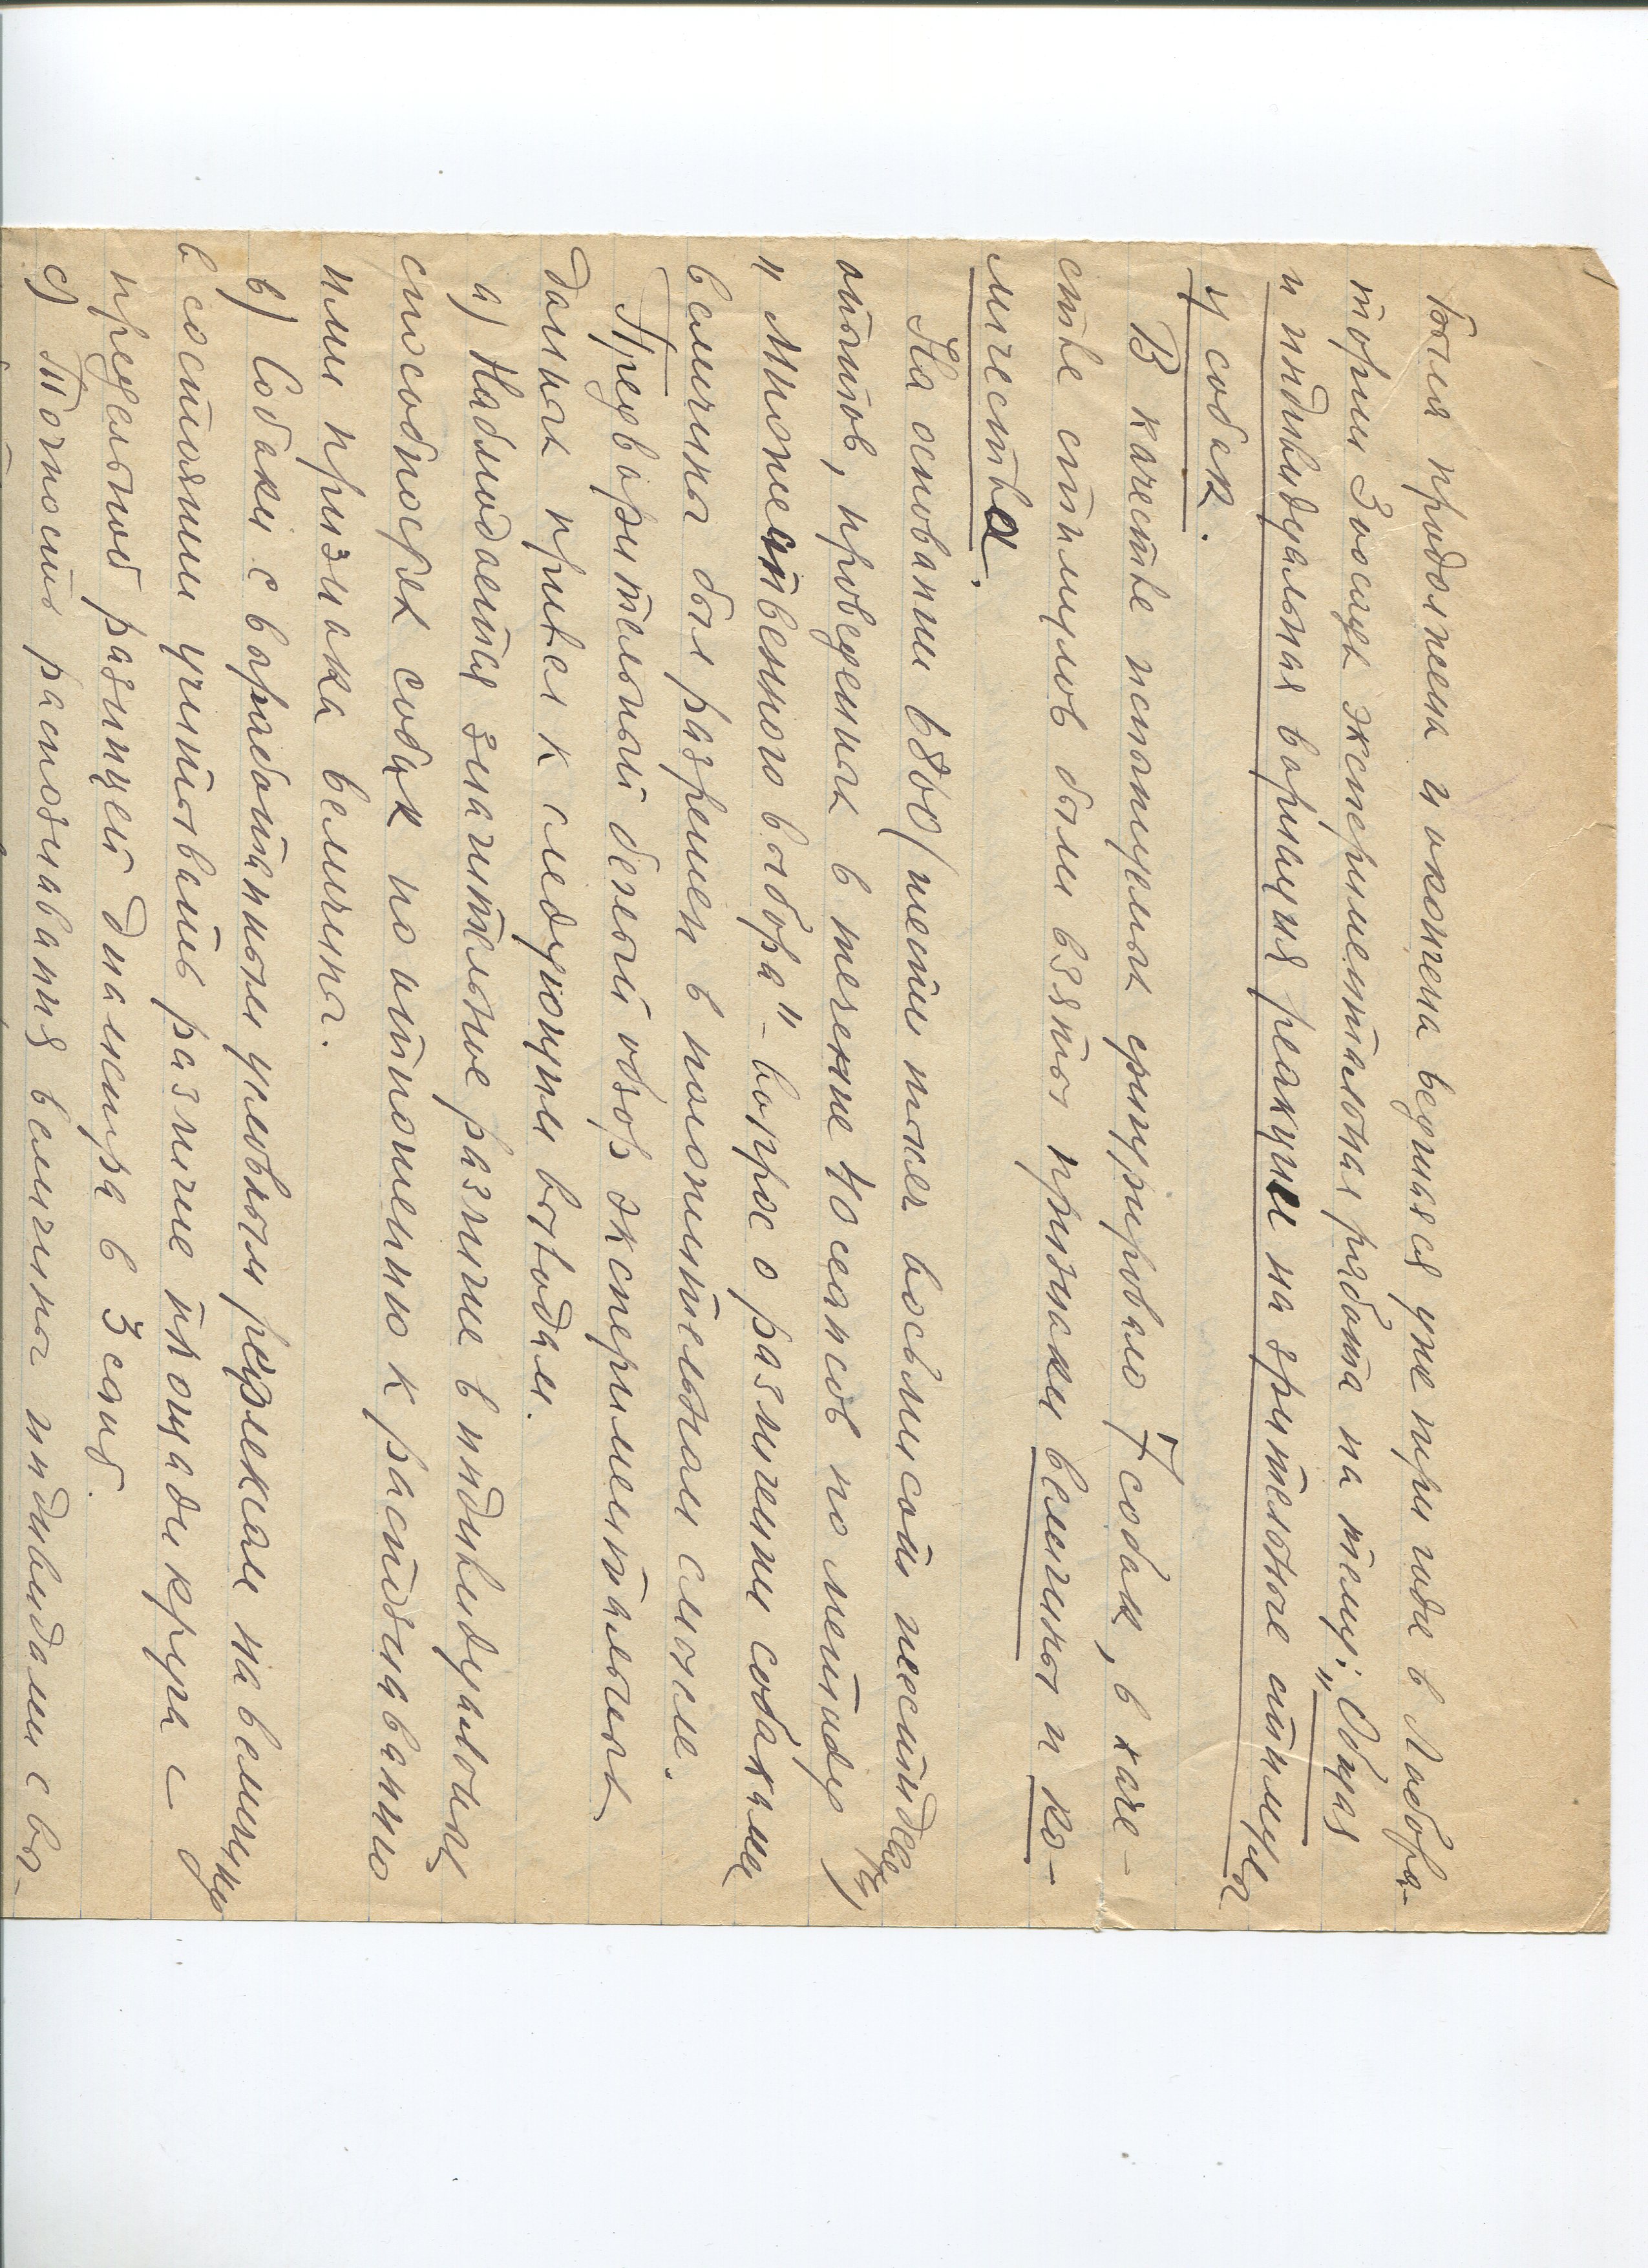 Была продолжена и окончена ведшаяся уже три года в Лабора-
тории Зоопсих экспериментальная работа на тему: „Общая
и индивидуальная вариация реакции на зрительные стимулы
у собак.
В качестве испытуемых фигурировало 7 собак, в каче-
стве стимулов были взяты признаки величины и ко-
личества.
На основании 6860 (шести тысяч восьмисот шестидесяти)
опытов, проведенных в течение 40 сеансов по методу
„Множественного выбора" – вопрос о различении собаками
величины был разрешен в положительном смысле.
Предварительный беглый обзор экспериментальных
данных привел к следующим выводам.
а) Наблюдается значительное различие в индивидуальных
способностях собак по отношению к распознаванию
ими признака величины.
в) Собаки с выработанным условным рефлексом на величину
в состоянии учитывать различие площади круга с
предельной разницей диаметра в 3 сант.
с) Точность распознавания величины индивидами с вы-